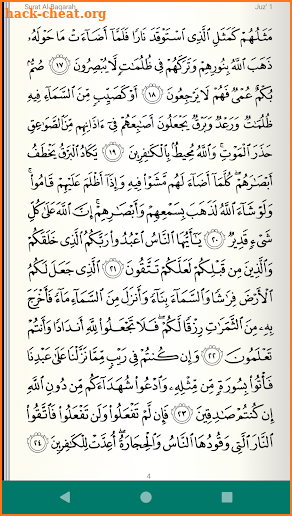 hack-cheat.org
Surat Al-Baqarah Juz' 1
مَثَلُهُمْ كَمَثَلِ ٱلَّذِى ٱسْتَوْقَدَ نَارًا فَلَمَّآ أَضَآءَتْ مَا حَوْلَهُۥ
ذَهَبَ ٱللَّهُ بِنُورِهِمْ وَتَرَكَهُمْ فِى ظُلُمَـٰتٍ لَّا يُبْصِرُونَ ١٧ صُمٌّۢ
بُكْمٌ عُمْىٌ فَهُمْ لَا يَرْجِعُونَ ١٨ أَوْ كَصَيِّبٍ مِّنَ ٱلسَّمَآءِ فِيهِ
ظُلُمَـٰتٌ وَرَعْدٌ وَبَرْقٌ يَجْعَلُونَ أَصَـٰبِعَهُمْ فِىٓ ءَاذَانِهِم مِّنَ ٱلصَّوَٰعِقِ
حَذَرَ ٱلْمَوْتِ ۚ وَٱللَّهُ مُحِيطٌۢ بِٱلْكَـٰفِرِينَ ١٩ يَكَادُ ٱلْبَرْقُ يَخْطَفُ
أَبْصَـٰرَهُمْ ۖ كُلَّمَآ أَضَآءَ لَهُم مَّشَوْا۟ فِيهِ وَإِذَآ أَظْلَمَ عَلَيْهِمْ قَامُوا۟ ۚ
وَلَوْ شَآءَ ٱللَّهُ لَذَهَبَ بِسَمْعِهِمْ وَأَبْصَـٰرِهِمْ ۚ إِنَّ ٱللَّهَ عَلَىٰ كُلِّ
شَىْءٍ قَدِيرٌ ٢٠ يَـٰٓأَيُّهَا ٱلنَّاسُ ٱعْبُدُوا۟ رَبَّكُمُ ٱلَّذِى خَلَقَكُمْ
وَٱلَّذِينَ مِن قَبْلِكُمْ لَعَلَّكُمْ تَتَّقُونَ ٢١ ٱلَّذِى جَعَلَ لَكُمُ
ٱلْأَرْضَ فِرَٰشًا وَٱلسَّمَآءَ بِنَآءً وَأَنزَلَ مِنَ ٱلسَّمَآءِ مَآءً فَأَخْرَجَ
بِهِۦ مِنَ ٱلثَّمَرَٰتِ رِزْقًا لَّكُمْ ۖ فَلَا تَجْعَلُوا۟ لِلَّهِ أَندَادًا وَأَنتُمْ
تَعْلَمُونَ ٢٢ وَإِن كُنتُمْ فِى رَيْبٍ مِّمَّا نَزَّلْنَا عَلَىٰ عَبْدِنَا
فَأْتُوا۟ بِسُورَةٍ مِّن مِّثْلِهِۦ وَٱدْعُوا۟ شُهَدَآءَكُم مِّن دُونِ ٱللَّهِ
إِن كُنتُمْ صَـٰدِقِينَ ٢٣ فَإِن لَّمْ تَفْعَلُوا۟ وَلَن تَفْعَلُوا۟ فَٱتَّقُوا۟
ٱلنَّارَ ٱلَّتِى وَقُودُهَا ٱلنَّاسُ وَٱلْحِجَارَةُ ۖ أُعِدَّتْ لِلْكَـٰفِرِينَ ٢٤
4
hack-cheat.org